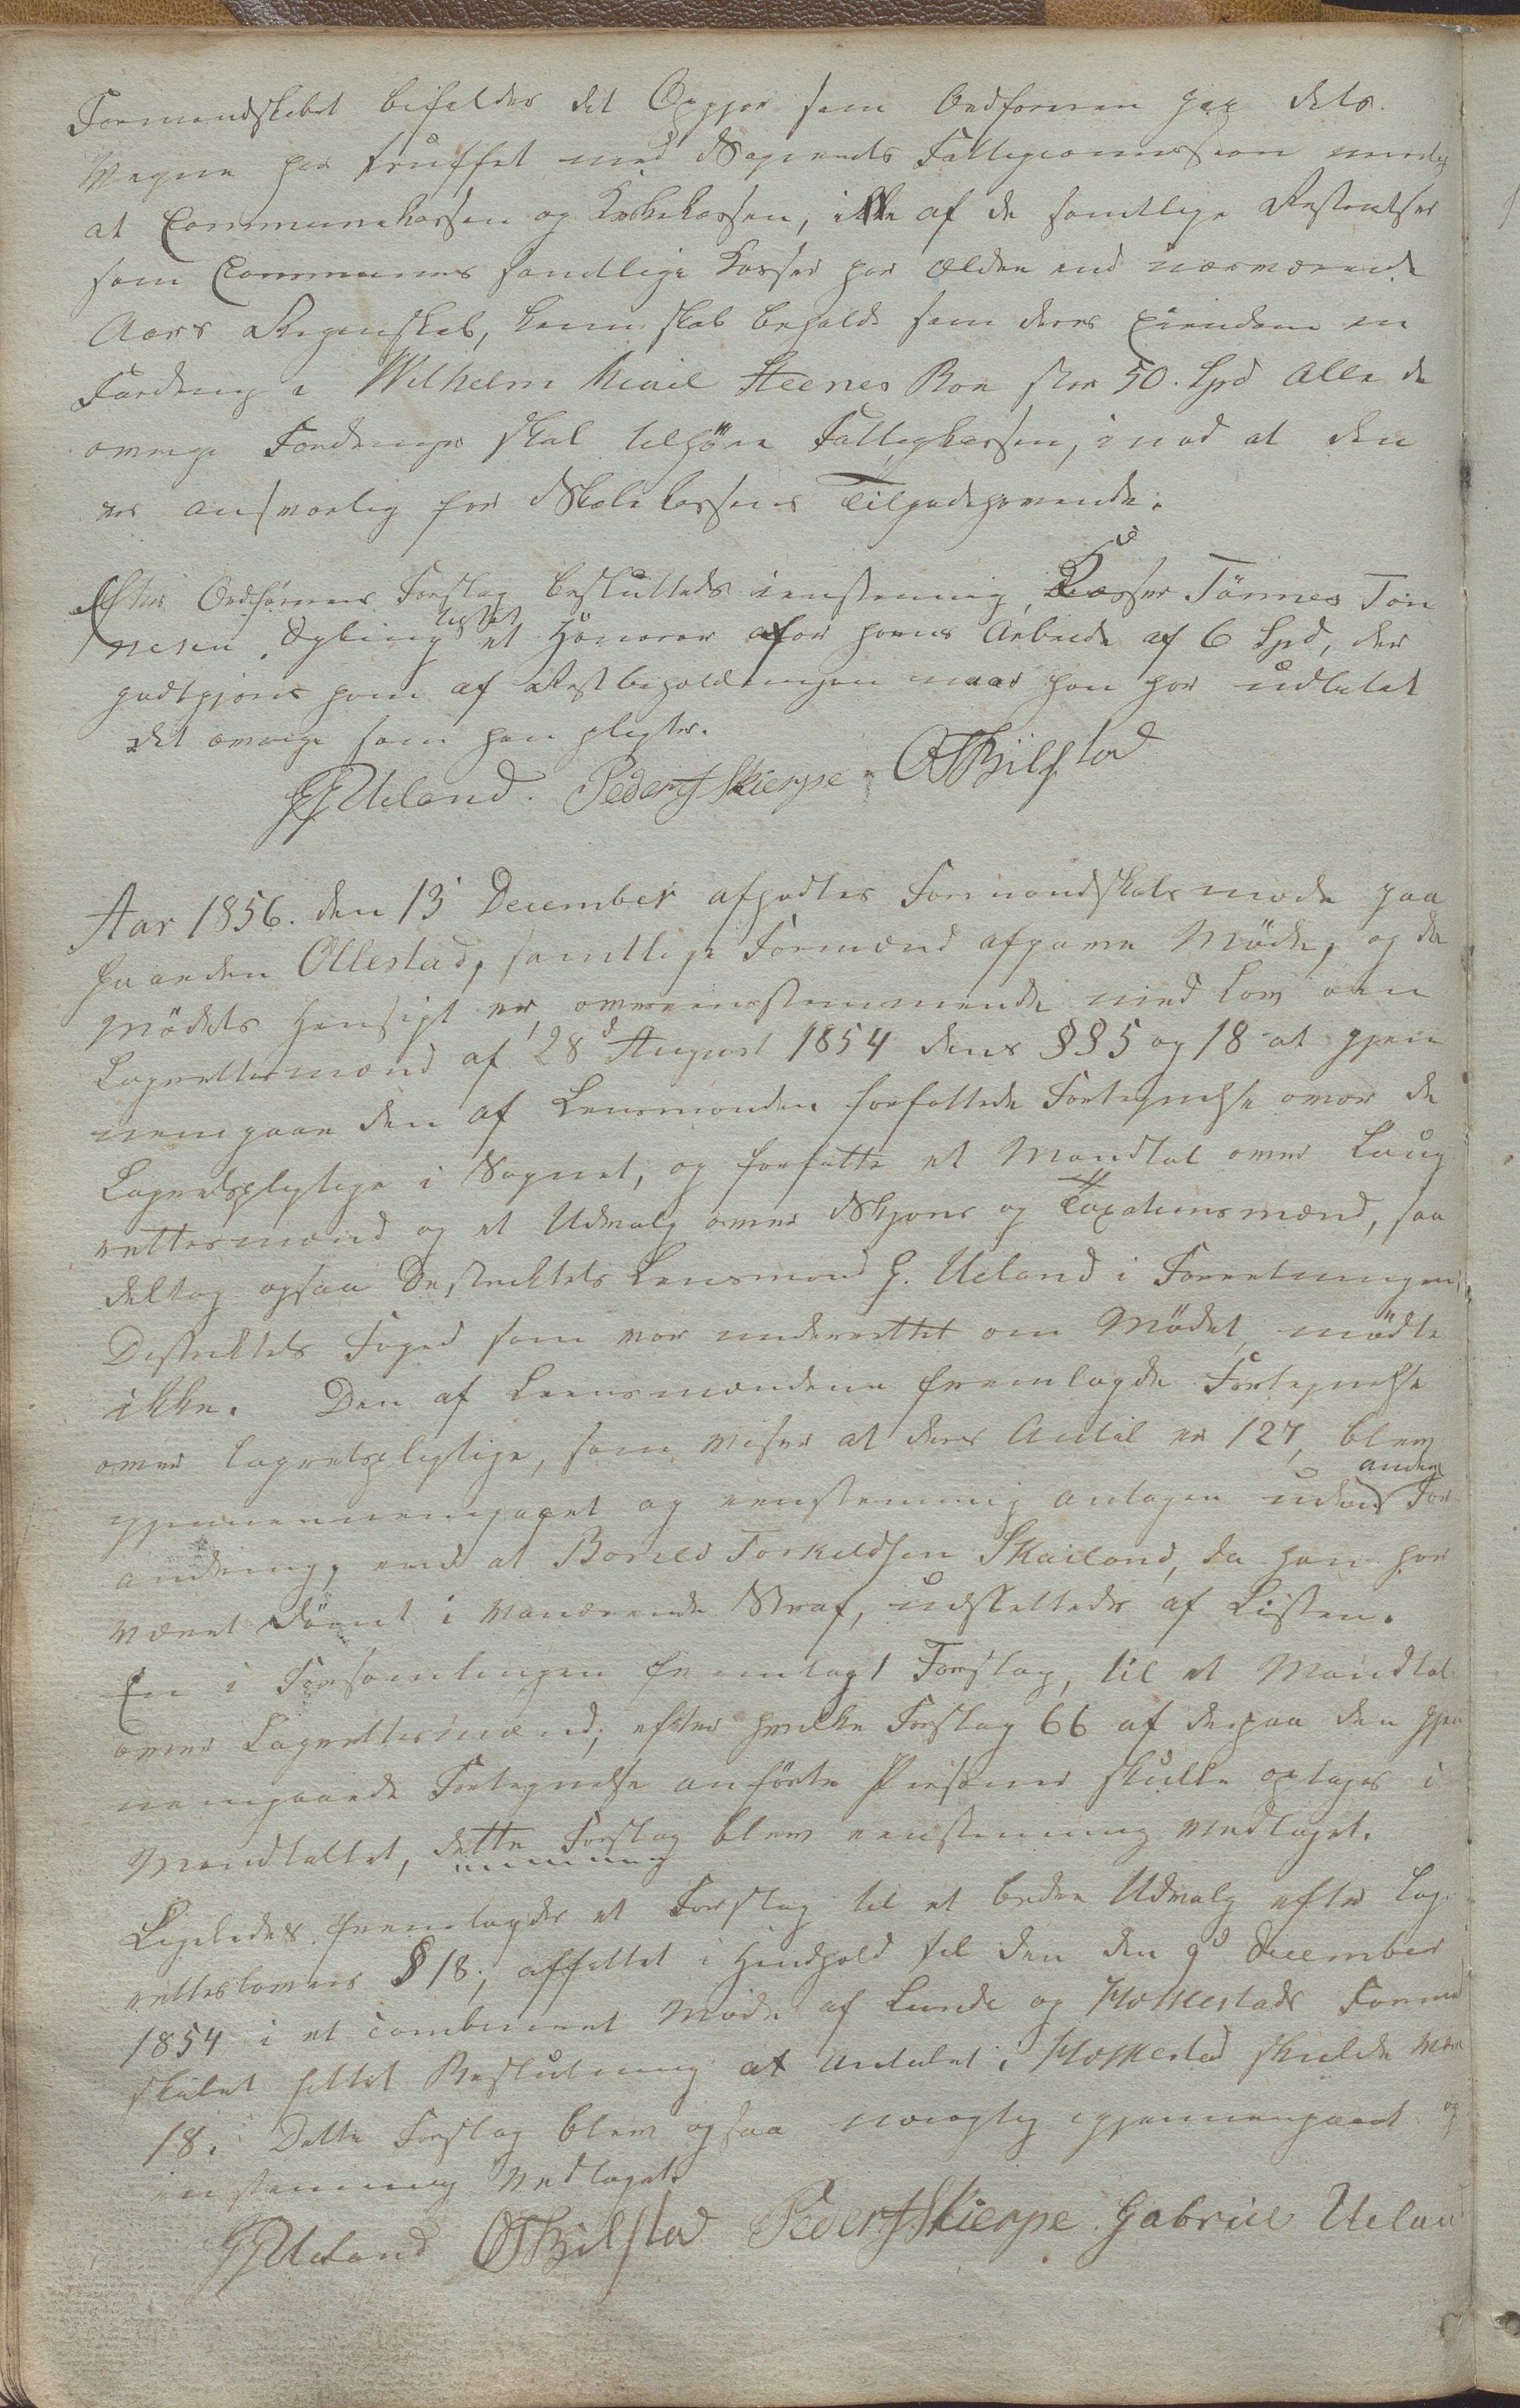 Formandskabet bifaldes det Opgjør som Ordføreren paa dets
Vegne har truffet med Sognets Fattigcommission nemlig
at Communekassen og Kirkekassen, ikke af de samtlige Restantser
som Communens samtlige Kasser har ældre end nærværende
Aars Regnskab, kun skal beholde som deres Eiendom en
Fordring i Wilhelm Kiæil Steenes Boe stor 50. Spd Alle de
øvrige Fordringer skal tilhøre Fattigkassen, imod at den
er ansvarlig for Skolekassens Tilgodehavende.
Efter Ordførerens Forslag besluttedes eenstemmig, Kasser Tönnes Tön
nesen Egeling tilstaaet et Honorar for hans Arbeide af 6 Spd, der
godtgjøres ham af Restbeholdningen naar han har udbetalt
det øvrige som han pligter.
GGUeland. Peder J Skierpe. OTBilstad
Aar 1856. den 13 December afholdtes Formandskabsmøde paa
Gaarden Ollestad, samtlige Formænd afgave Møde, og da
Mødets Hensigt er, overeensstemmende med Lov om
Lagrettesmænd af 28d August 1854 dens §§5 og 18 at gjen
nemgaae den af Lensmanden forfattede Fortegnelse over de
Lagretspligtige i Sognet, og forfatte et Mandtal over Laug
rettesmænd og et Udvalg over Skjøns og Taxationsmænd, saa
deltog ogsaa Destriktets Lensmand G. Ueland i Forretningen,
Destriktets Foged som var underrettet om Mødet, mødte
ikke. Den af Lensmændene fremlagde Fortegnelse
over lagretspligtige, som viser at deres Antal er 127, blev
gjennemgaaet og eenstemmig antagen uden anden For
andring, end at Borild Torkildsen Skailand, da han har
været dömt i vanærende Straf, udslettedes af Listen.
En i Forsamlingen fremlagt Forslag, til et Mandtal
over Lagrettesmænd, efter hvilke Forslag 66 af de paa den gjen
nemgaaede Fortegnelse anførte Personer skulle optages i
Mandtallet, dette Forslag blev eenstemmig vedtaget.
Ligeledes fremlagdes et Forslag til et bedre Udvalg efter Lag
retteslovens §18, affattet i Henhold til den den 9d December
1854 i et combineret Møde af Lunde og Hæskestads Formand
skabet fattet Beslutning at Antalet i Hæskestad skulde være
18. Dette Forslag blev ogsaa nøiagtig gjennemgaaet og
enstemmig vedtaget.
GGUeland OTBilstad Peder J Skierpe. Gabriel Ueland